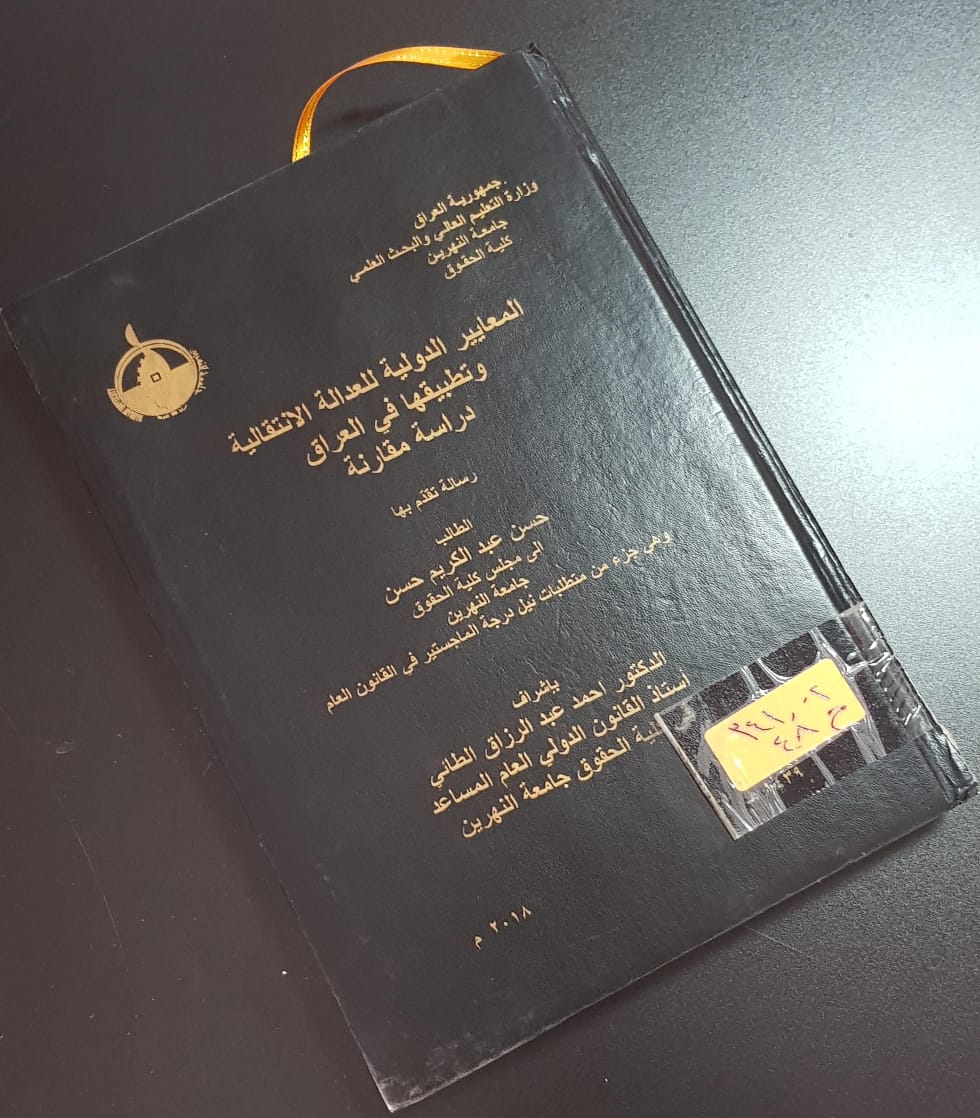 جمهورية العراق
وزارة التعليم العالي والبحث العلمي
جامعة النهرين
كلية الحقوق
المعايير الدولية للعدالة الانتقالية
وتطبيقها في العراق
دراسة مقارنة
رسالة تقدّم بها
الطالب
حسن عبد الكريم حسن
الى مجلس كلية الحقوق
جامعة النهرين
وهي جزء من متطلبات نيل درجة الماجستير في القانون العام
باشراف
الدكتور احمد عبد الرزاق الطائي
استاذ القانون الدولي العام المساعد
كلية الحقوق جامعة النهرين
٢٠١٨ م
٣٤١,٠٢
ح ٤٨